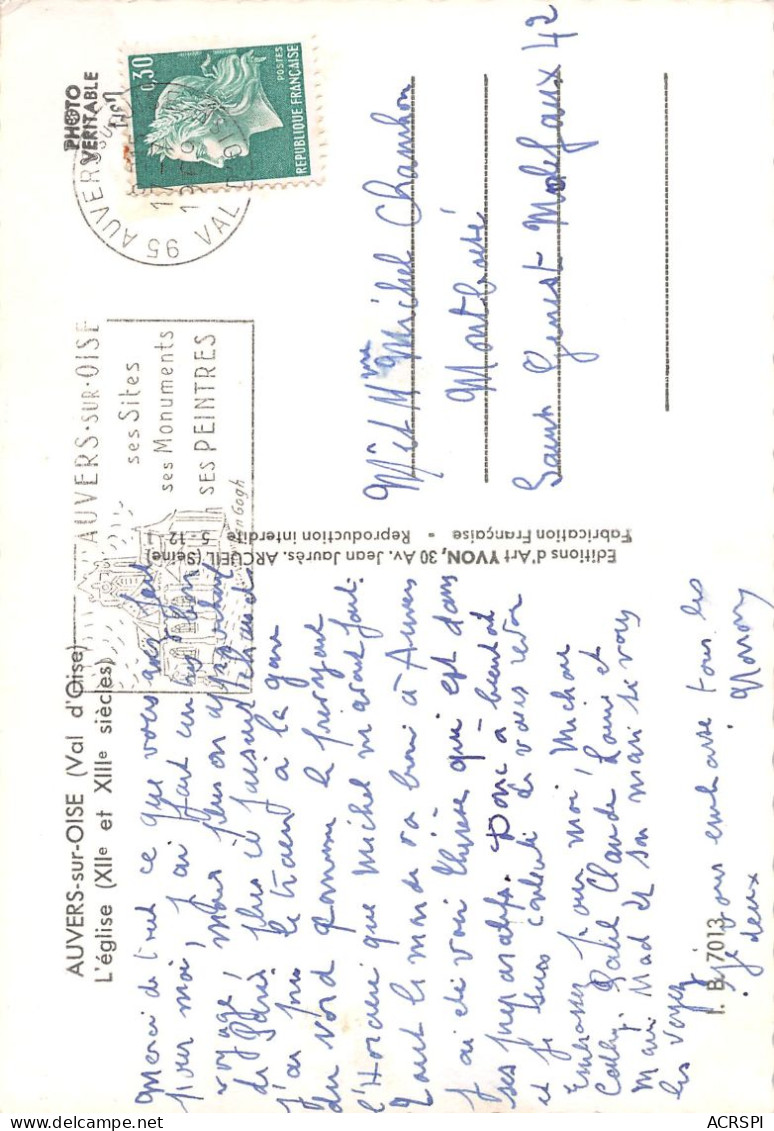 AUVERS-sur-OISE (Val d'Oise)
L'église (XIIe et XIIIe siècles)
Merci de tout ce que vous avez fait
pour moi, j'ai fait un bon
voyage, mais plus on approchait
de Paris plus il faisait chaud
J'ai pris le train à la gare
du nord comme le prévoyait
l'Horaire que Michel m'avait fait.
Tout le monde va bien à Auvers
J'ai été voir Thérèse qui est dans
ses préparatifs. Donc à bientôt
et je serai contente de vous revoir
Embrassez pour moi, Michou
Cathy Claude Louis et
Mari Mad et son mari si vous
les voyez
je vous embrasse tous les
deux
I. B. 7013
Editions d'Art YVON, 30 Av. Jean Jaurès, ARCUEIL (Seine)
Fabrication Française - Reproduction interdite 5-12
AUVERS-SUR-OISE
ses Sites
ses Monuments
SES PEINTRES
Van Gogh
95 AUVERS SUR OISE
VAL D'OISE
PHOTO
VERITABLE
0,30
POSTES
REPUBLIQUE FRANÇAISE
Mr et Mme Michel Chambon
Saint Genest Malifaux 42
ACRSPI